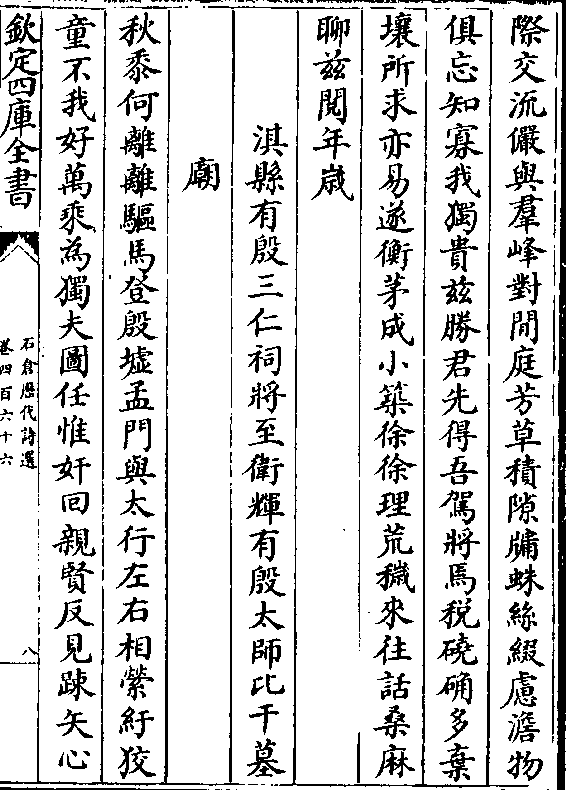 際交流儼與羣峰對間庭芳草積隙牖蛛絲綴慮澹物
俱忘知寡我獨貴兹勝君先得吾駕將焉稅磽确多棄
壤所求亦易遂衡茅成小築徐徐理荒穢來往話桑麻
聊兹閱年歲
淇縣有殷三仁祠將至衛輝有殷太師比干墓
廟
秋黍何離離驅馬登殷墟孟門與太行左右相縈紆狡
童不我好萬乘為獨夫圖任惟奸回親賢反見踈矢心
欽定四庫全書
石倉歷代詩選
卷四百六十六
八